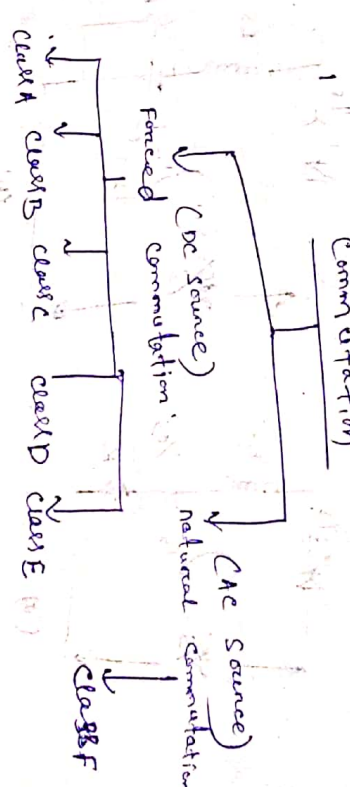 Commutation
(DC source)
Forced commutation
(AC source)
natural commutation
Class A
Class B
Class C
Class D
Class E
Class F